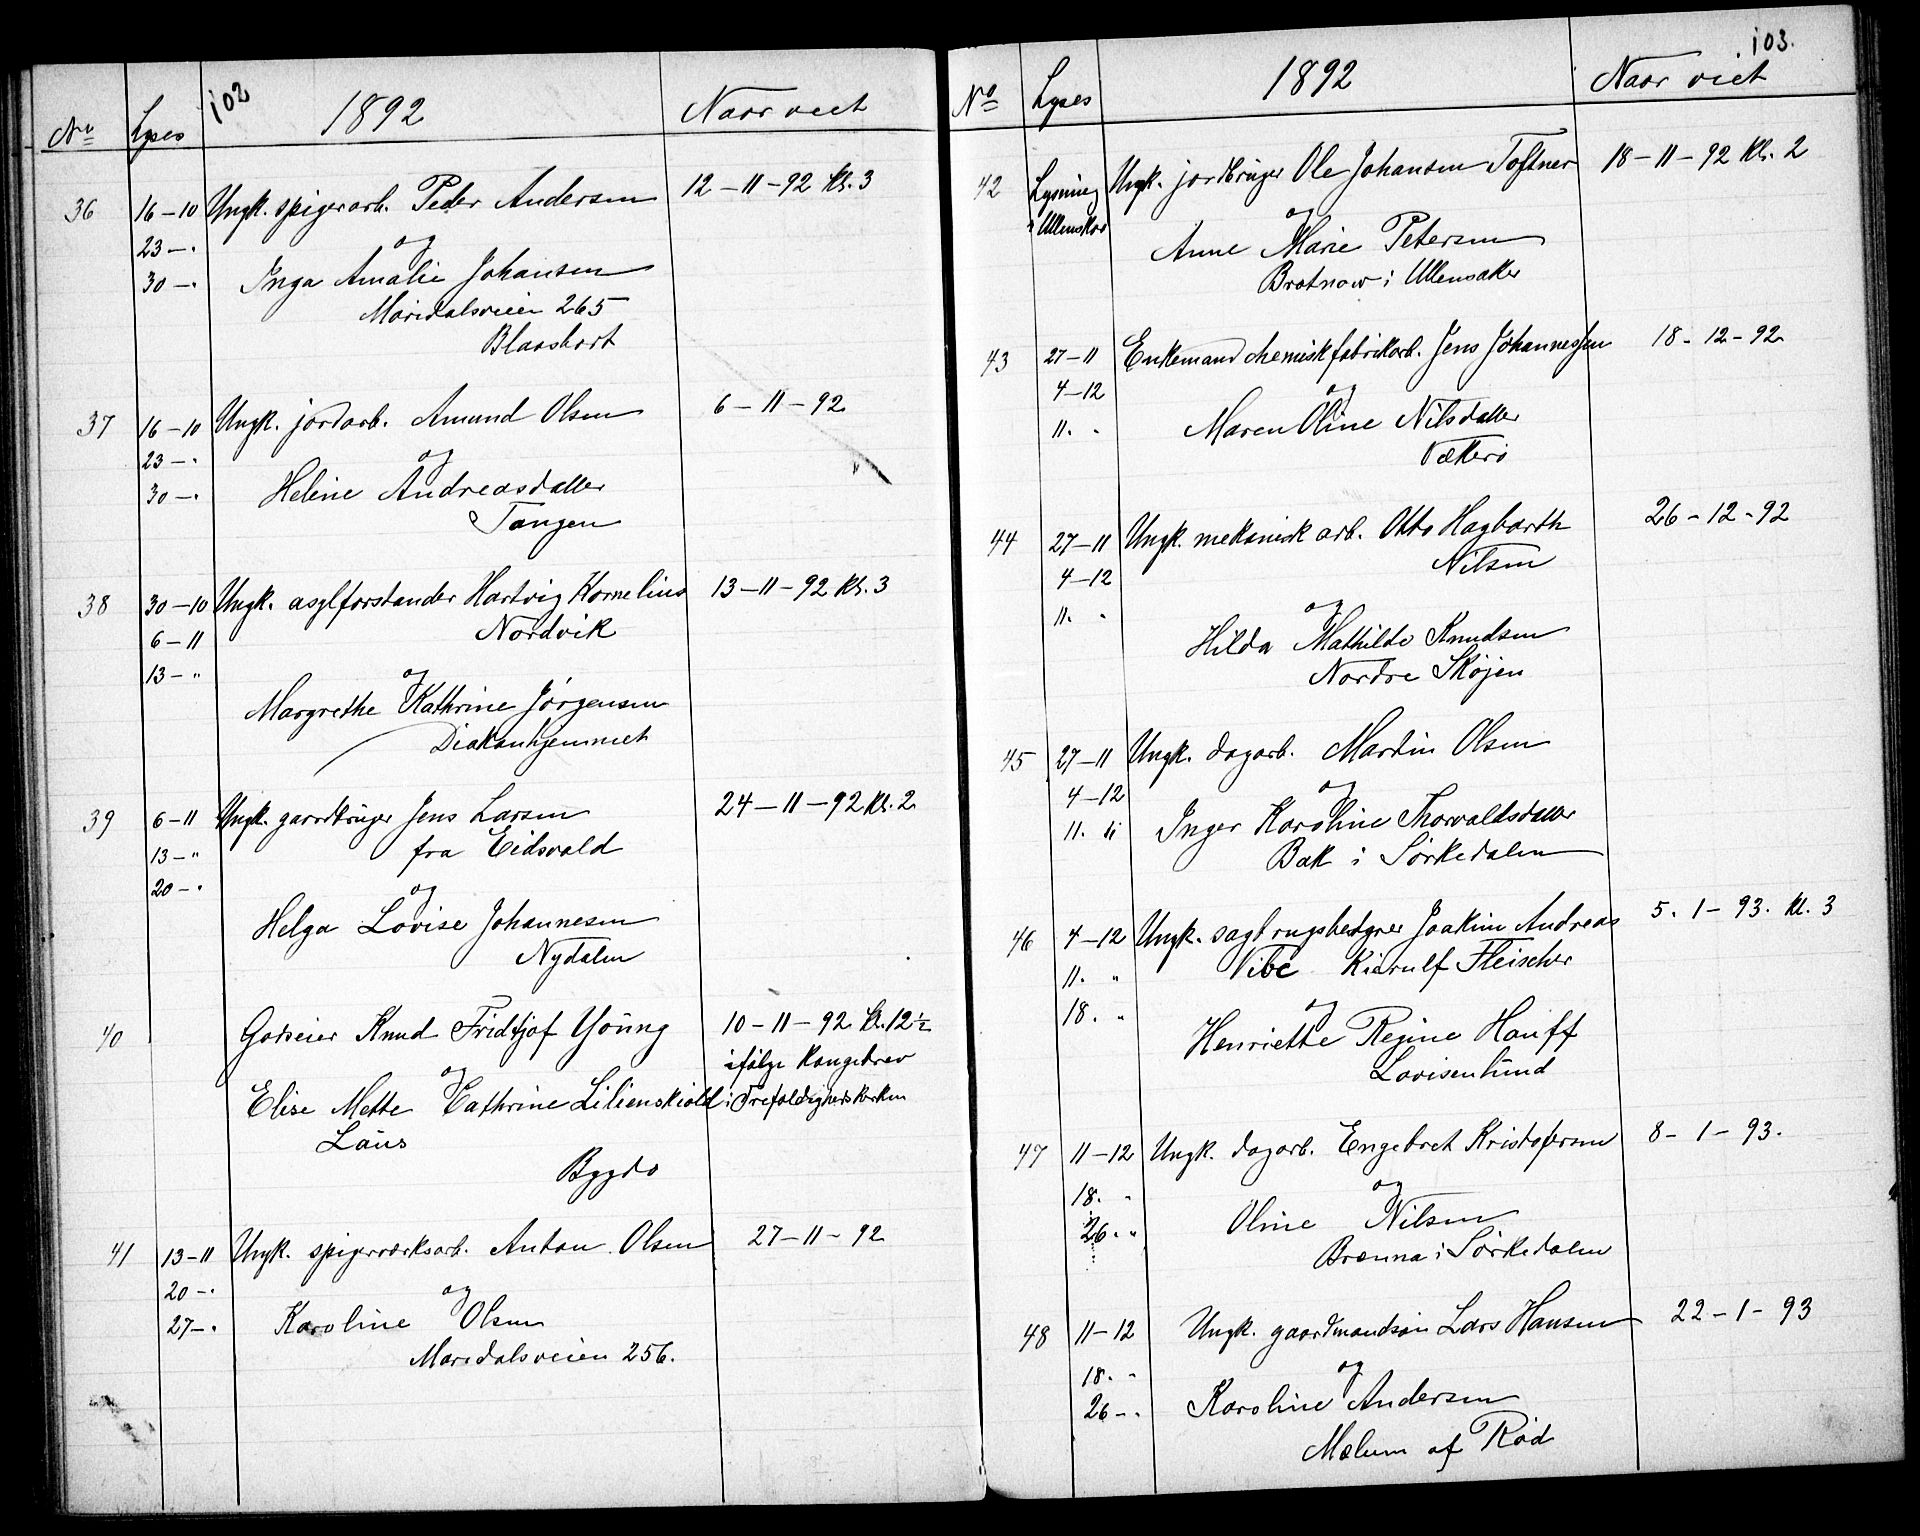 102
No Lyses 1892 Naar viet
36 16-10 Ungk. spigerarb. Peder Andersen 12-11-92 Kl. 3
23-"
og
30-" Inga Amalie Johansen
Maridalsveien 265
37 16-10 Ungk. jordarb. Amund Olsen 6-11-92
23-"
og
30-" Helene Andreasdatter
Tangen
38 30-10 Ungk. asylforstander Hartvig Kornelius 13-11-92 Kl. 3
6-11 Nordvik
13-"
og
Margrethe Kathrine Jørgensen
Diakonhjemmet
39 6-11 Ungk. gaardbruger Jens Larsen 24-11-92 Kl. 2
13-" fra Eidsvold
20-"
og
Helga Lovise Johannesen
Nydalen
40 Godseier Knud Fridtjof Young 10-11-92 Kl. 12½
og ifølge Kongebrev
Elise Mette Cathrine Lilienskiold i Trefoldighedskirken
Bygdø
41 13-11 Ungk. spigerværksarb. Anton Olsen 27-11-92
20-"
og
27-" Karoline Olsen
Maridalsveien 256.
103.
No Lyses 1892 Naar viet
42 Lysning Ungk. jordbruger Ole Johansen Toftner 18-11-92 Kl. 2
i
og
Anne Marie Petersen
i Ullensaker
43 27-11 Enkemand chemiskfabrikarb. Jens Johannessen 18-12-92
4-12
og
11. " Maren Oline Nilsdatter
Vækerø
44 27-11 Ungk. mekanisk arb. Otto Hagbarth 26-12-92
4-12 Nilsen
11. "
og
Hilda Mathilde Knudsen
Nordre Skøjen
45 27-11 Ungk. dagarb. Martin Olsen
4-12
og
11. " Inger Karoline Thorvaldsdatter
Bak i Sørkedalen
46 4-12 Ungk. sagbrugsbestyrer Joakim Andreas 5. 1-93. kl. 3
11. " Vibe Kierulf Fleischer
18. "
og
Henriette Regine Hauff
Lovisenlund
47 11-12 Ungk. dagarb. Engebret Kristofersen 8-1-93.
18. "
og
26. " Oline Nilsen
Brenna i Sørkedalen
48 11-12 Ungk. gaardmandsøn Lars Hansen 22-1-93
18. "
og
26-" Karoline Andersen
Mælum af Rød